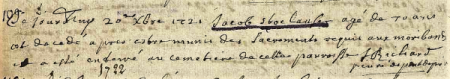 Ce jourdhuy 20e Xbre 1721 Jacob agé de 70 ans
est decedé apres estre munis des Sacrements requis aux moribonds
et a esté enterré au cemetiere de cette parroisse J Richard
1722